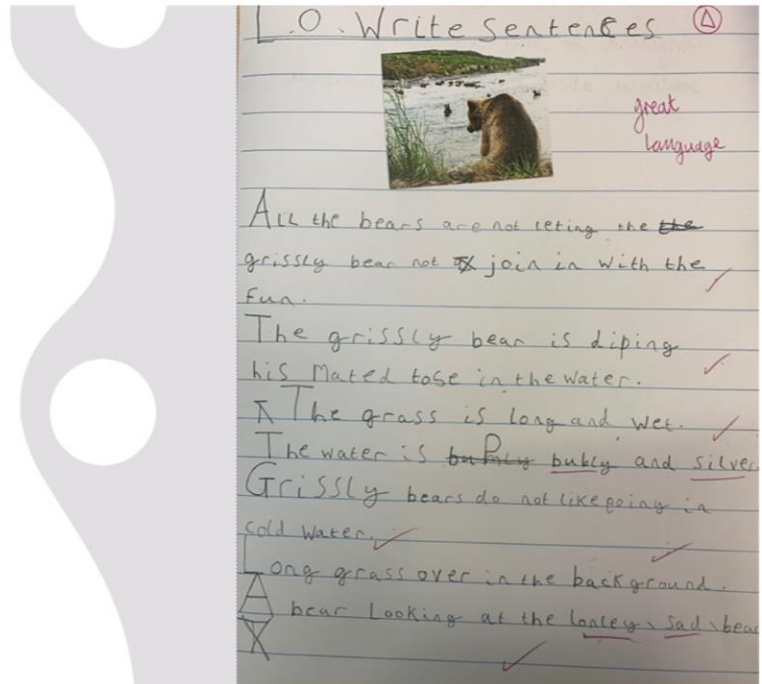 L.O. Write sentences
great
language
All the bears are not leting the the
grissly bear not join in with the
fun.
The grissly bear is diping
his Mated tose in the water.
The grass is long and wet.
The water is bubly and silver
Grissly bears do not like going in
cold water.
Long grass over in the background.
A bear Looking at the lonley, sad, bear